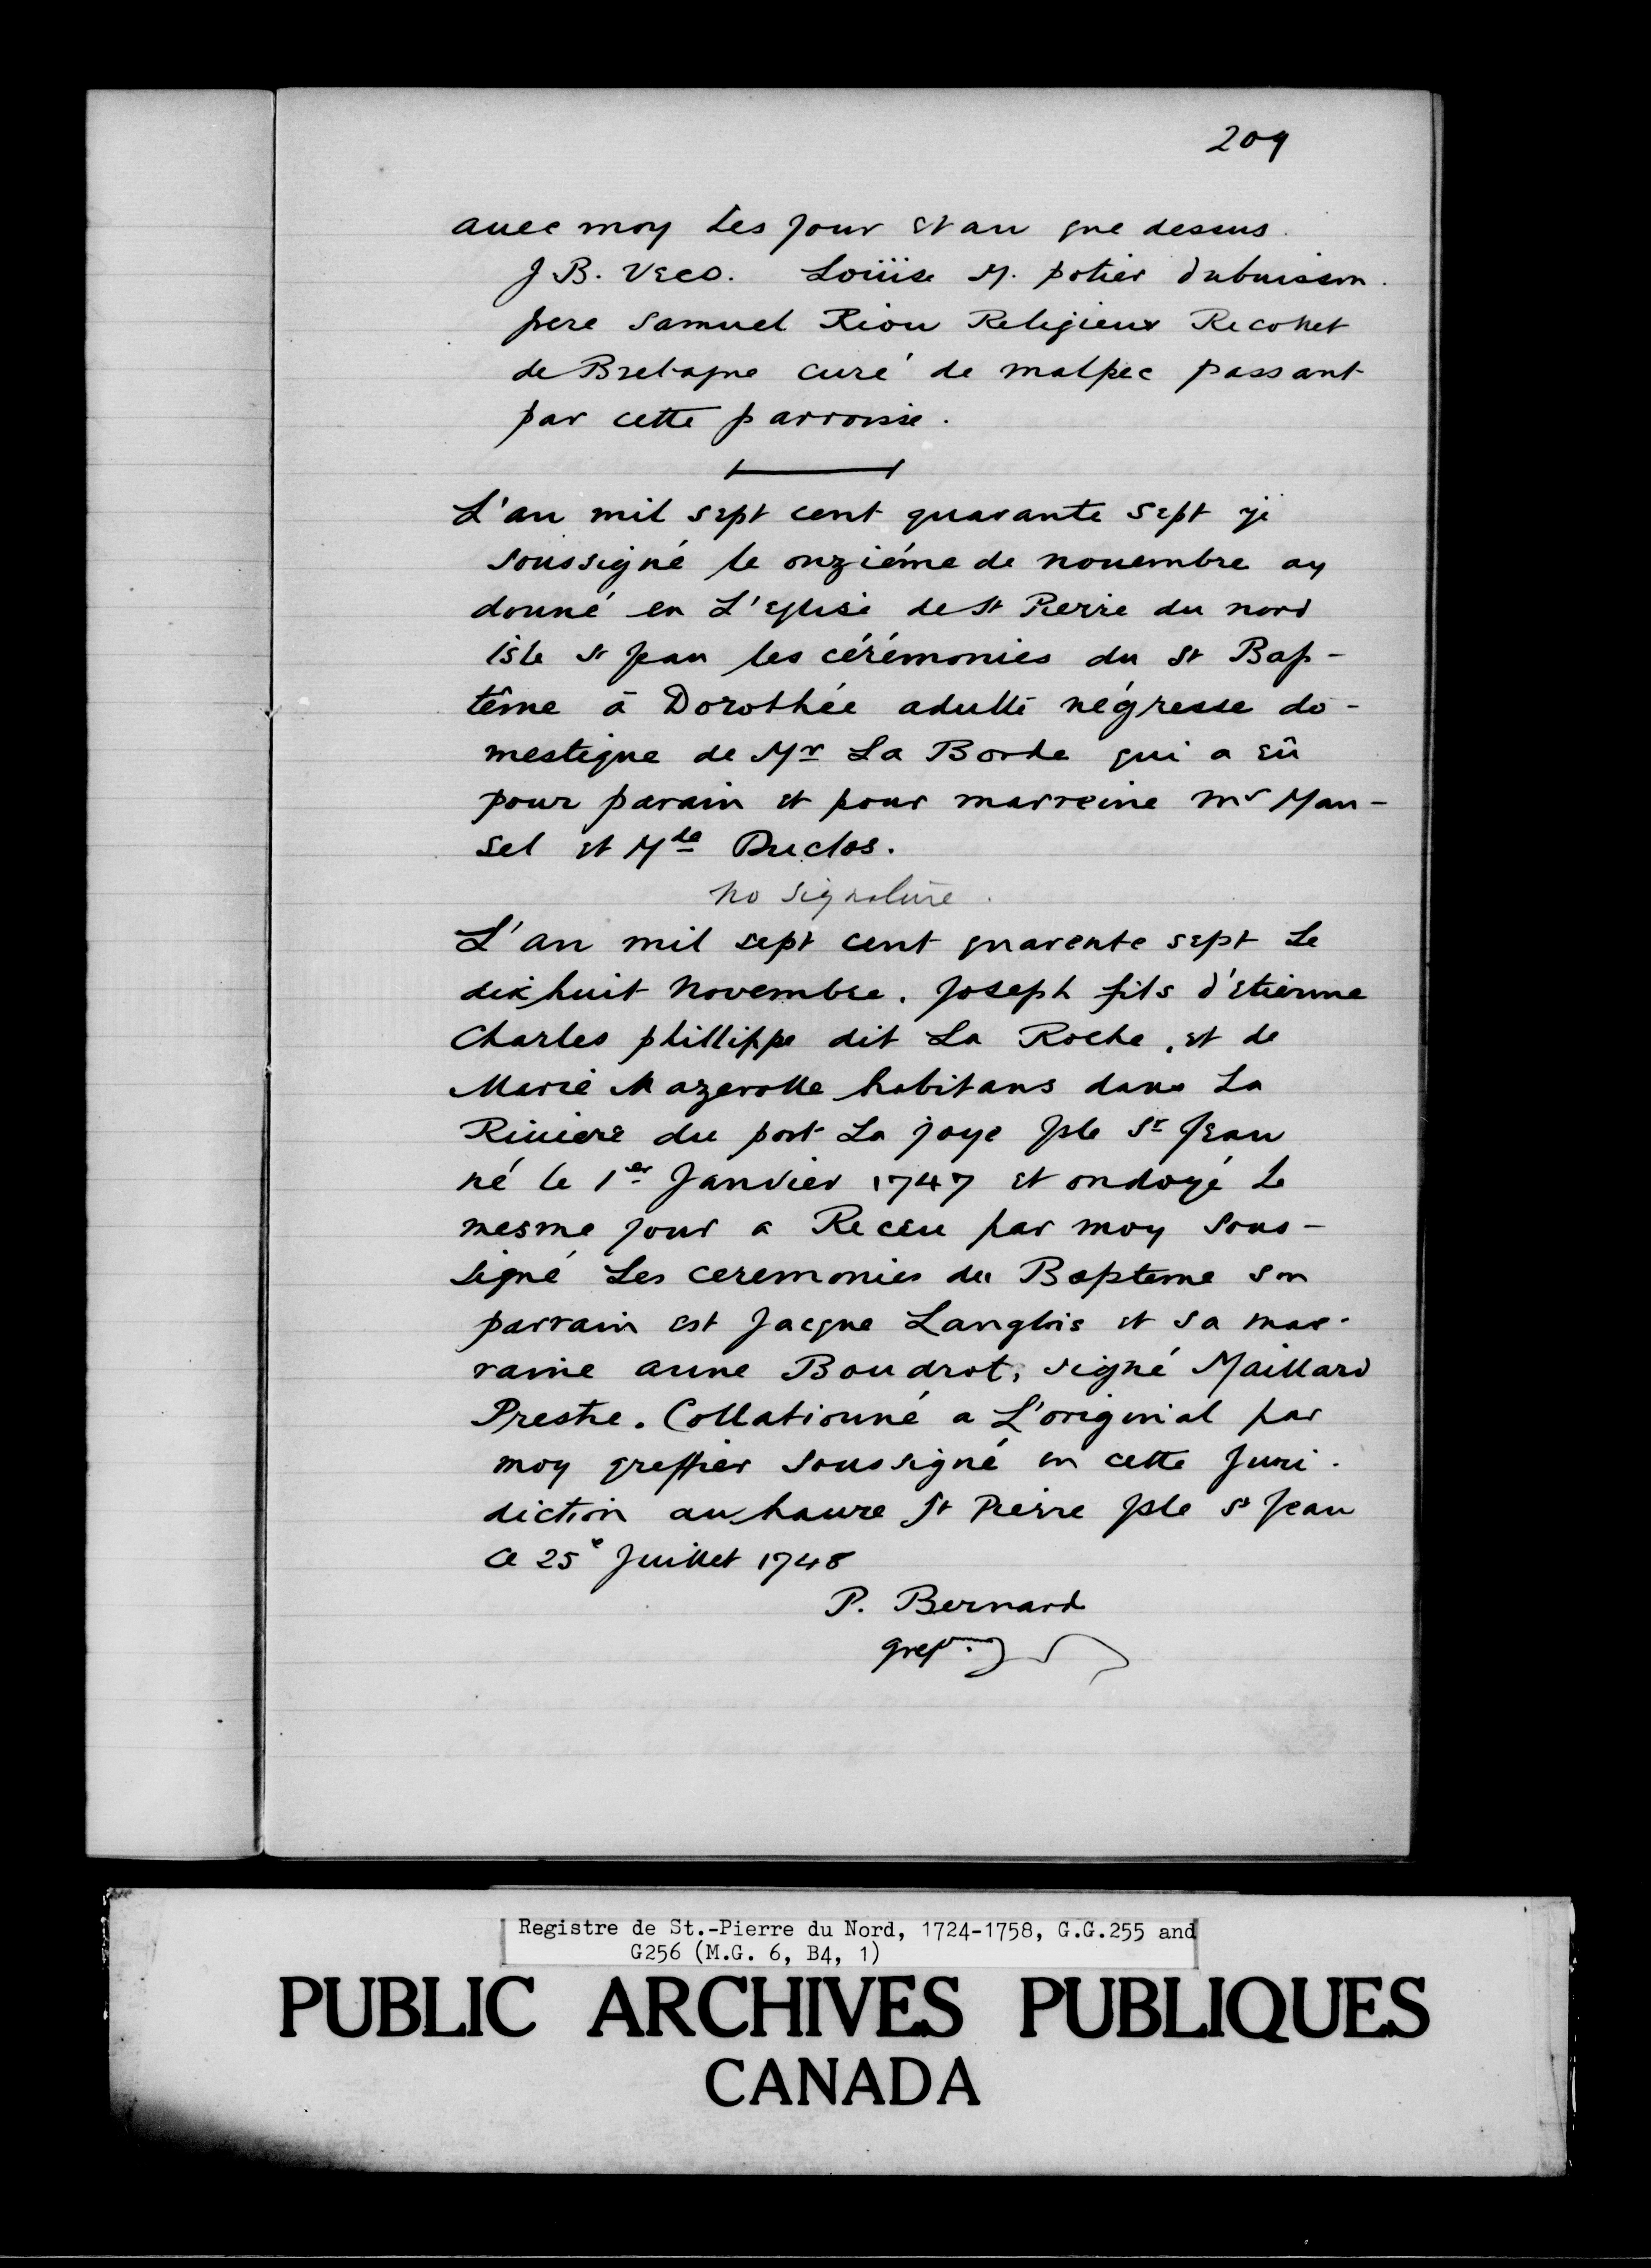 209
auec moy les jour et an que dessus.
J B. Veco. Loüise M. potier dubuisson.
frere Samuel Riou Religieux Recollet
de Bretagne curé de malpec passant
par cette parroisse.
L'an mil sept cent quarante sept je
soussigné le onziéme de nouembre ay
donné en L'Eglise de St Pierre du nord
isle St Jean les cérémonies du St Bap-
tême à Dorothée adulte négresse do-
mestique de Mr La Borde qui a eû
pour parain et pour marreine mr Man-
sel et Mde Duclos.
no signature.
L'an mil sept cent quarente sept Le
dixhuit Novembre. Joseph fils d'Etienne
Charles phillippe dit La Roche, et de
Marie Mazerolle habitans dans La
Riuiere du port La joye Jsle St Jean
né le 1er Janvier 1747 et ondoyé Le
mesme jour a Receu par moy Sous-
signé Les ceremonies du Bapteme son
parrain est Jacque Langlois et sa mar-
raine anne Boudrot, signé Maillard
Prestre. Collationné a L'original par
moy greffier soussigné en cette Juri-
diction au haure St Pierre Jsle St Jean
Ce 25e Juillet 1748
P. Bernard
gref.
Registre de St.-Pierre du Nord, 1724-1758, G.G.255 and
G256 (M.G. 6, B4, 1)
PUBLIC ARCHIVES PUBLIQUES
CANADA